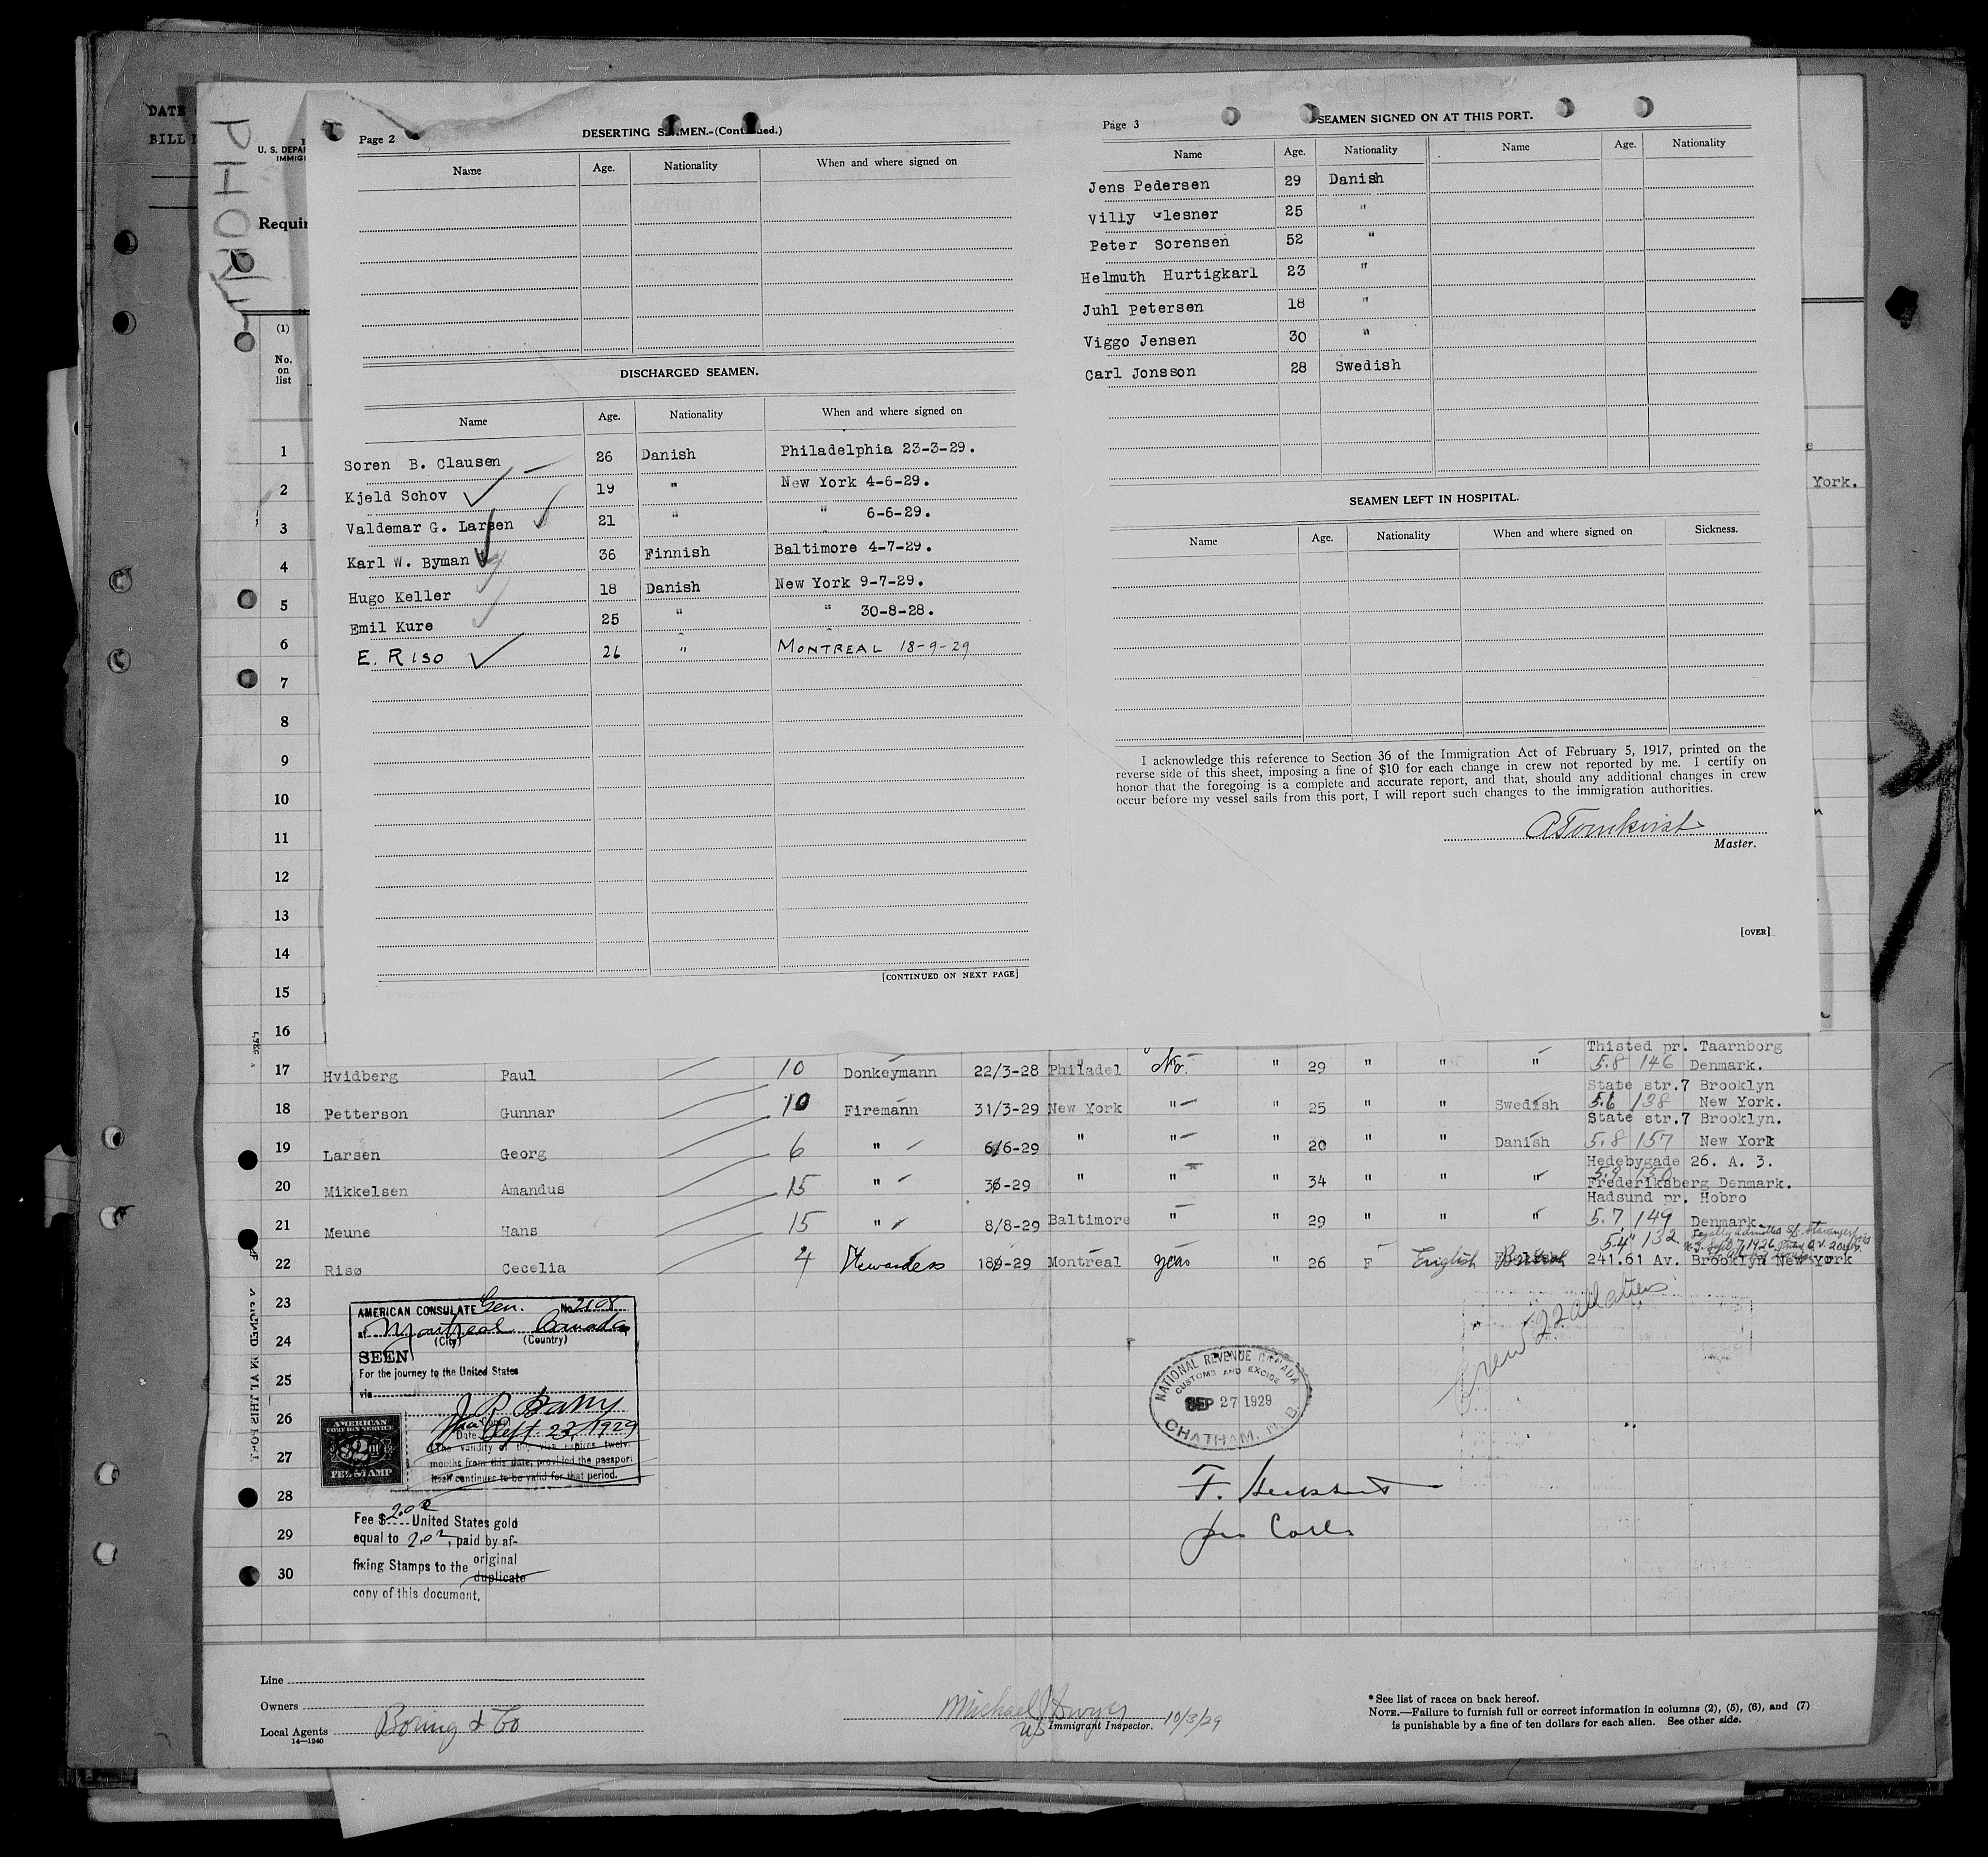 DATE
BILL
PHOR
U. S. DEPAR
IMMIGR
Requir
(1)
No.
on
list
Page 2
DESERTING SEAMEN.-(Continued.)
Name Age. Nationality When and where signed on
DISCHARGED SEAMEN.
Name Age. Nationality When and where signed on
Soren B. Clausen 26 Danish Philadelphia 23-3-29.
Kjeld Schov 19 " New York 4-6-29.
Valdemar G. Larsen 21 " " 6-6-29.
Karl W. Byman 36 Finnish Baltimore 4-7-29.
Hugo Keller 18 Danish New York 9-7-29.
Emil Kure 25 " " 30-8-28.
E. RISO 26 " MONTREAL 18-9-29
[CONTINUED ON NEXT PAGE]
Page 3
SEAMEN SIGNED ON AT THIS PORT.
Name Age. Nationality Name Age. Nationality
Jens Pedersen 29 Danish
Villy Glesner 25 "
Peter Sorensen 52 "
Helmuth Hurtigkarl 23 "
Juhl Petersen 18 "
Viggo Jensen 30 "
Carl Jonsson 28 Swedish
SEAMEN LEFT IN HOSPITAL.
Name Age. Nationality When and where signed on Sickness.
I acknowledge this reference to Section 36 of the Immigration Act of February 5, 1917, printed on the
reverse side of this sheet, imposing a fine of $10 for each change in crew not reported by me. I certify on
honor that the foregoing is a complete and accurate report, and that, should any additional changes in crew
occur before my vessel sails from this port, I will report such changes to the immigration authorities.
Master.
[OVER]
York.
1
2
3
4
5
6
7
8
9
10
11
12
13
14
15
16
Thisted pr. Taarnborg
17 Hvidberg Paul 10 Donkeymann 22/3-28 Philadel No. " 29 " " " 5.8 146 Denmark.
State str.7 Brooklyn
18 Petterson Gunnar 10 Firemann 31/3-29 New York " " 25 " " Swedish 5.6 138 New York.
State str.7 Brooklyn.
19 Larsen Georg 6 " 6/6-29 " " " 20 Danish 5.8 157 New York
Hedebygade 26. A. 3.
20 Mikkelsen Amandus 15 " -29 " " " 34 " " " 5.9 150 Frederiksberg Denmark.
Hadsund pr. Hobro
21 Meune Hans 15 " 8/8-29 Baltimore " " 29 " " " 5.7 149 Denmark.
5.4" 132
22 Risø Cecelia 4 Stewardess -29 Montreal yes " 26 F English 241.61 Av. Brooklyn New York
23
24
25
26
27
28
29
30
AMERICAN CONSULATE Gen. No. 2108
at Montreal Canada
(City) (Country)
SEEN
For the journey to the United States
via
Date Sept. 23, 1929
The validity of this visa expires twelve
months from this date, provided the passport
itself continues to be valid for that period.
AMERICAN
FOREIGN SERVICE
$2
FEE STAMP
Fee $ 2.00 United States gold
equal to 2.00, paid by af-
fixing Stamps to the original
duplicate
copy of this document.
NATIONAL REVENUE CANADA
CUSTOMS AND EXCISE
SEP 27 1929
CHATHAM, N. B.
Crew 22 all aliens
Line
Owners
Local Agents Boring & Co
14—1240
Michael Dwyer
US Immigrant Inspector. 10/3/29
* See list of races on back hereof.
NOTE.—Failure to furnish full or correct information in columns (2), (5), (6), and (7)
is punishable by a fine of ten dollars for each alien. See other side.